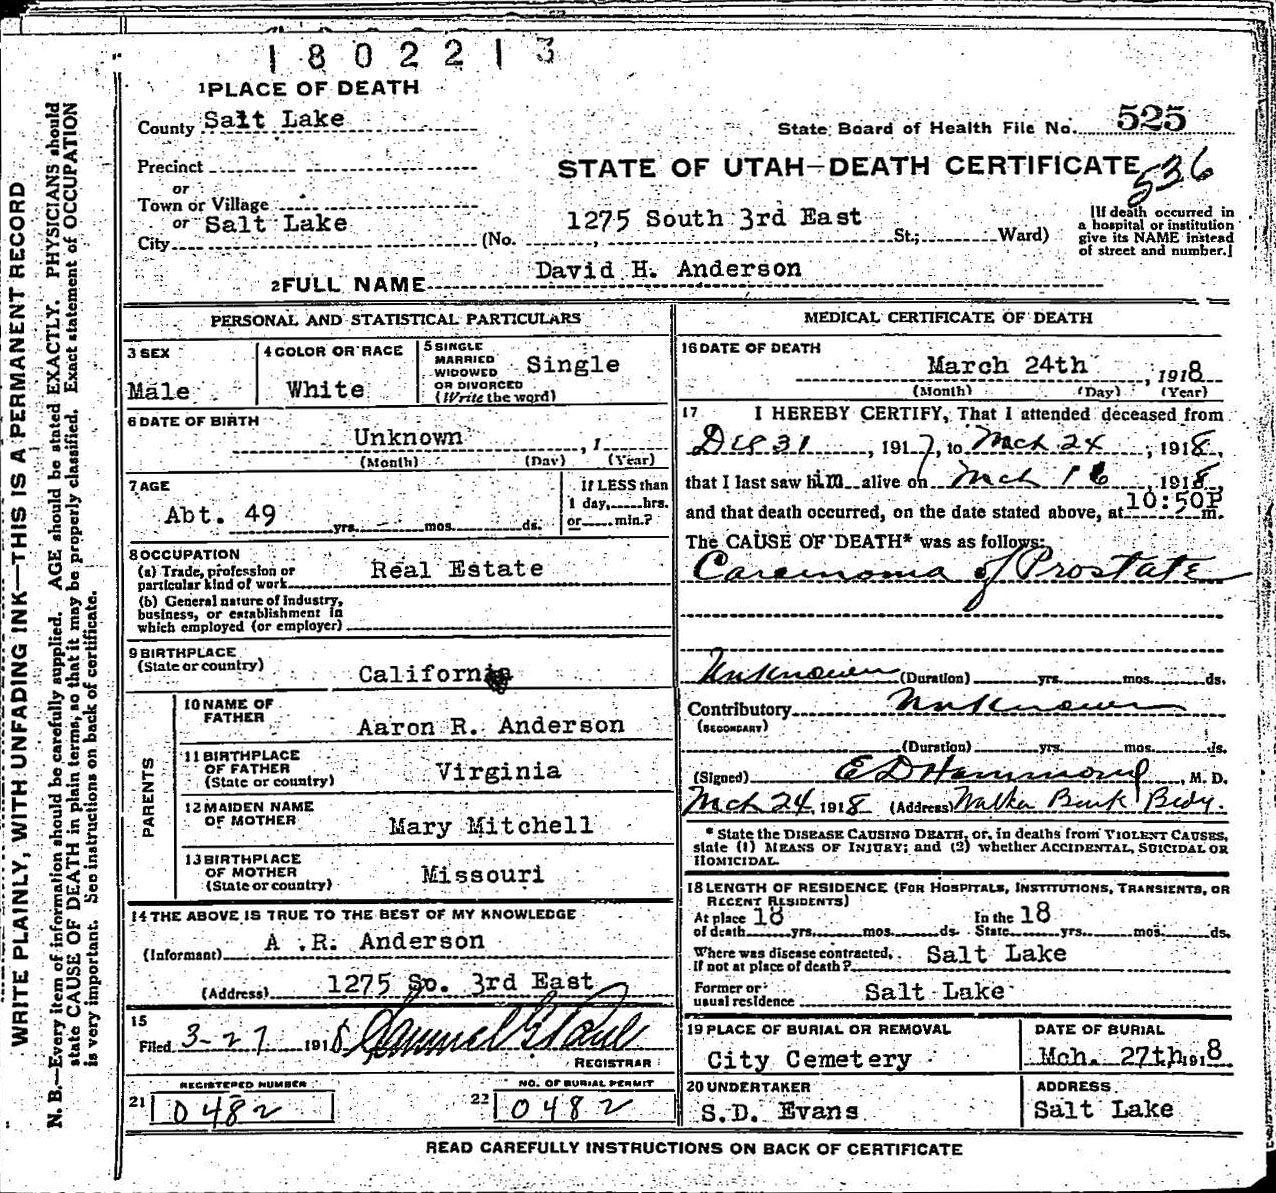 1802213
1 PLACE OF DEATH
County Salt Lake
State Board of Health File No. 525
Precinct
STATE OF UTAH—DEATH CERTIFICATE
536
or
Town or Village
or Salt Lake
City (No. 1275 South 3rd East St.; Ward)
[If death occurred in
a hospital or institution
give its NAME instead
of street and number.]
2 FULL NAME David H. Anderson
PERSONAL AND STATISTICAL PARTICULARS
3 SEX
Male
4 COLOR OR RACE
White
5 SINGLE
MARRIED
WIDOWED
OR DIVORCED
(Write the word)
Single
6 DATE OF BIRTH
Unknown , 1
(Month) (Day) (Year)
7 AGE
Abt. 49 yrs. mos. ds.
If LESS than
1 day, hrs.
or min.?
8 OCCUPATION
(a) Trade, profession or
particular kind of work Real Estate
(b) General nature of Industry,
business, or establishment in
which employed (or employer)
9 BIRTHPLACE
(State or country) California
PARENTS
10 NAME OF
FATHER
Aaron R. Anderson
11 BIRTHPLACE
OF FATHER
(State or country)
Virginia
12 MAIDEN NAME
OF MOTHER
Mary Mitchell
13 BIRTHPLACE
OF MOTHER
(State or country)
Missouri
14 THE ABOVE IS TRUE TO THE BEST OF MY KNOWLEDGE
(Informant) A .R. Anderson
(Address) 1275 So. 3rd East
15
Filed 3-27 1918
REGISTRAR
REGISTERED NUMBER
21 0482
NO. OF BURIAL PERMIT
22 0482
MEDICAL CERTIFICATE OF DEATH
16 DATE OF DEATH
March 24th , 1918
(Month) (Day) (Year)
17 I HEREBY CERTIFY, That I attended deceased from
Dec 31 , 1917, to Mch 24 , 1918,
that I last saw him alive on Mch 16 , 1918,
and that death occurred, on the date stated above, at 10:50P m.
The CAUSE OF DEATH* was as follows:
Carcinoma of Prostate
Unknown (Duration) yrs. mos. ds.
Contributory Unknown
(SECONDARY)
(Duration) yrs. mos. ds.
(Signed) E D Hammond , M. D.
Mch 24, 1918 (Address) Walker Bank Bldg.
* State the DISEASE CAUSING DEATH, or, in deaths from VIOLENT CAUSES,
state (1) MEANS OF INJURY; and (2) whether ACCIDENTAL, SUICIDAL OR
HOMICIDAL.
18 LENGTH OF RESIDENCE (FOR HOSPITALS, INSTITUTIONS, TRANSIENTS, OR
RECENT RESIDENTS)
At place 18 In the 18
of death yrs. mos. ds. State yrs. mos. ds.
Where was disease contracted,
if not at place of death? Salt Lake
Former or
usual residence Salt Lake
19 PLACE OF BURIAL OR REMOVAL
City Cemetery
DATE OF BURIAL
Mch. 27th, 1918
20 UNDERTAKER
S.D. Evans
ADDRESS
Salt Lake
READ CAREFULLY INSTRUCTIONS ON BACK OF CERTIFICATE
WRITE PLAINLY, WITH UNFADING INK—THIS IS A PERMANENT RECORD
N. B.—Every item of information should be carefully supplied. AGE should be stated EXACTLY. PHYSICIANS should
state CAUSE OF DEATH in plain terms, so that it may be properly classified. Exact statement of OCCUPATION
is very important. See instructions on back of certificate.